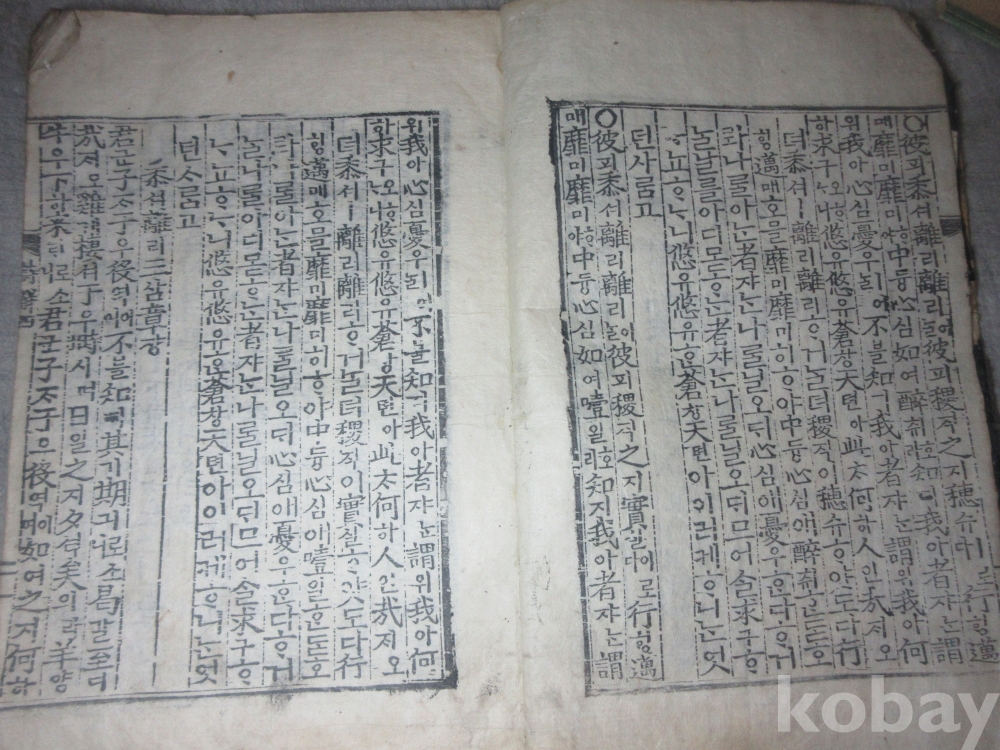 ○彼피黍셔離리離리어늘彼피稷직之지穗슈ㅣ로다行ᄒᆡᆼ邁
매靡미靡미ᄒᆞ야中듕心심如여醉ᄎᆔ호라知지我아者쟈ᄂᆞᆫ謂
위我아心심憂우ㅣ라不블知지我아者쟈ᄂᆞᆫ謂위我아何
하求구오ᄒᆞᄂᆞ니悠유悠유蒼창天텬아此ᄎᆞ何하人인哉ᄌᆡ오
뎌黍셔ㅣ離리離리ᄒᆞ거늘뎌稷직이穗슈ᄒᆞ얏도다行
ᄒᆡᆼ邁매호믈靡미靡미히ᄒᆞ야中듕心심애醉ᄎᆔᄒᆞᆫᄃᆞᆺ호
라나ᄅᆞᆯ아ᄂᆞᆫ者쟈ᄂᆞᆫ나ᄅᆞᆯ닐오ᄃᆡ心심애憂우ᄒᆞᆫ다ᄒᆞ거
ᄂᆞᆯ날ᄅᆞᆯ아디몯ᄒᆞᄂᆞᆫ者쟈ᄂᆞᆫ나ᄅᆞᆯ닐오ᄃᆡ므어슬求구ᄒᆞ
ᄂᆞ뇨ᄒᆞᄂᆞ니悠유悠유ᄒᆞᆫ蒼창天텬아이러케ᄒᆞ니ᄂᆞᆫ엇
던사ᄅᆞᆷ고
○彼피黍셔離리離리어늘彼피稷직之지實실이로다行ᄒᆡᆼ邁
매靡미靡미ᄒᆞ야中듕心심如여噎일호라知지我아者쟈ᄂᆞᆫ謂
위我아心심憂우ㅣ라不블知지我아者쟈ᄂᆞᆫ謂위我아何
하求구오ᄒᆞᄂᆞ니悠유悠유蒼창天텬아此ᄎᆞ何하人인哉ᄌᆡ오
뎌黍셔ㅣ離리離리ᄒᆞ거늘뎌稷직이實실ᄒᆞ얏도다行
ᄒᆡᆼ邁매호믈靡미靡미히ᄒᆞ야中듕心심애噎일ᄒᆞᆫᄃᆞᆺ호
라나ᄅᆞᆯ아ᄂᆞᆫ者쟈ᄂᆞᆫ나ᄅᆞᆯ닐오ᄃᆡ心심애憂우ᄒᆞᆫ다ᄒᆞ거
ᄂᆞᆯ나ᄅᆞᆯ아디몯ᄒᆞᄂᆞᆫ者쟈ᄂᆞᆫ나ᄅᆞᆯ닐오ᄃᆡ므어슬求구ᄒᆞ
ᄂᆞ뇨ᄒᆞᄂᆞ니悠유悠유ᄒᆞᆫ蒼창天텬아이러케ᄒᆞ니ᄂᆞᆫ엇
던사ᄅᆞᆷ고
黍셔離리三삼章쟝
君군子ᄌᆞ于우役역이여不블知지其기期긔로소니曷갈至지
哉ᄌᆡ오雞계棲셔于우塒시며日일之지夕셕矣의라羊양
牛우下하來ᄅᆡ로소니君군子ᄌᆞ于우役역이여如여之지何하
kobay